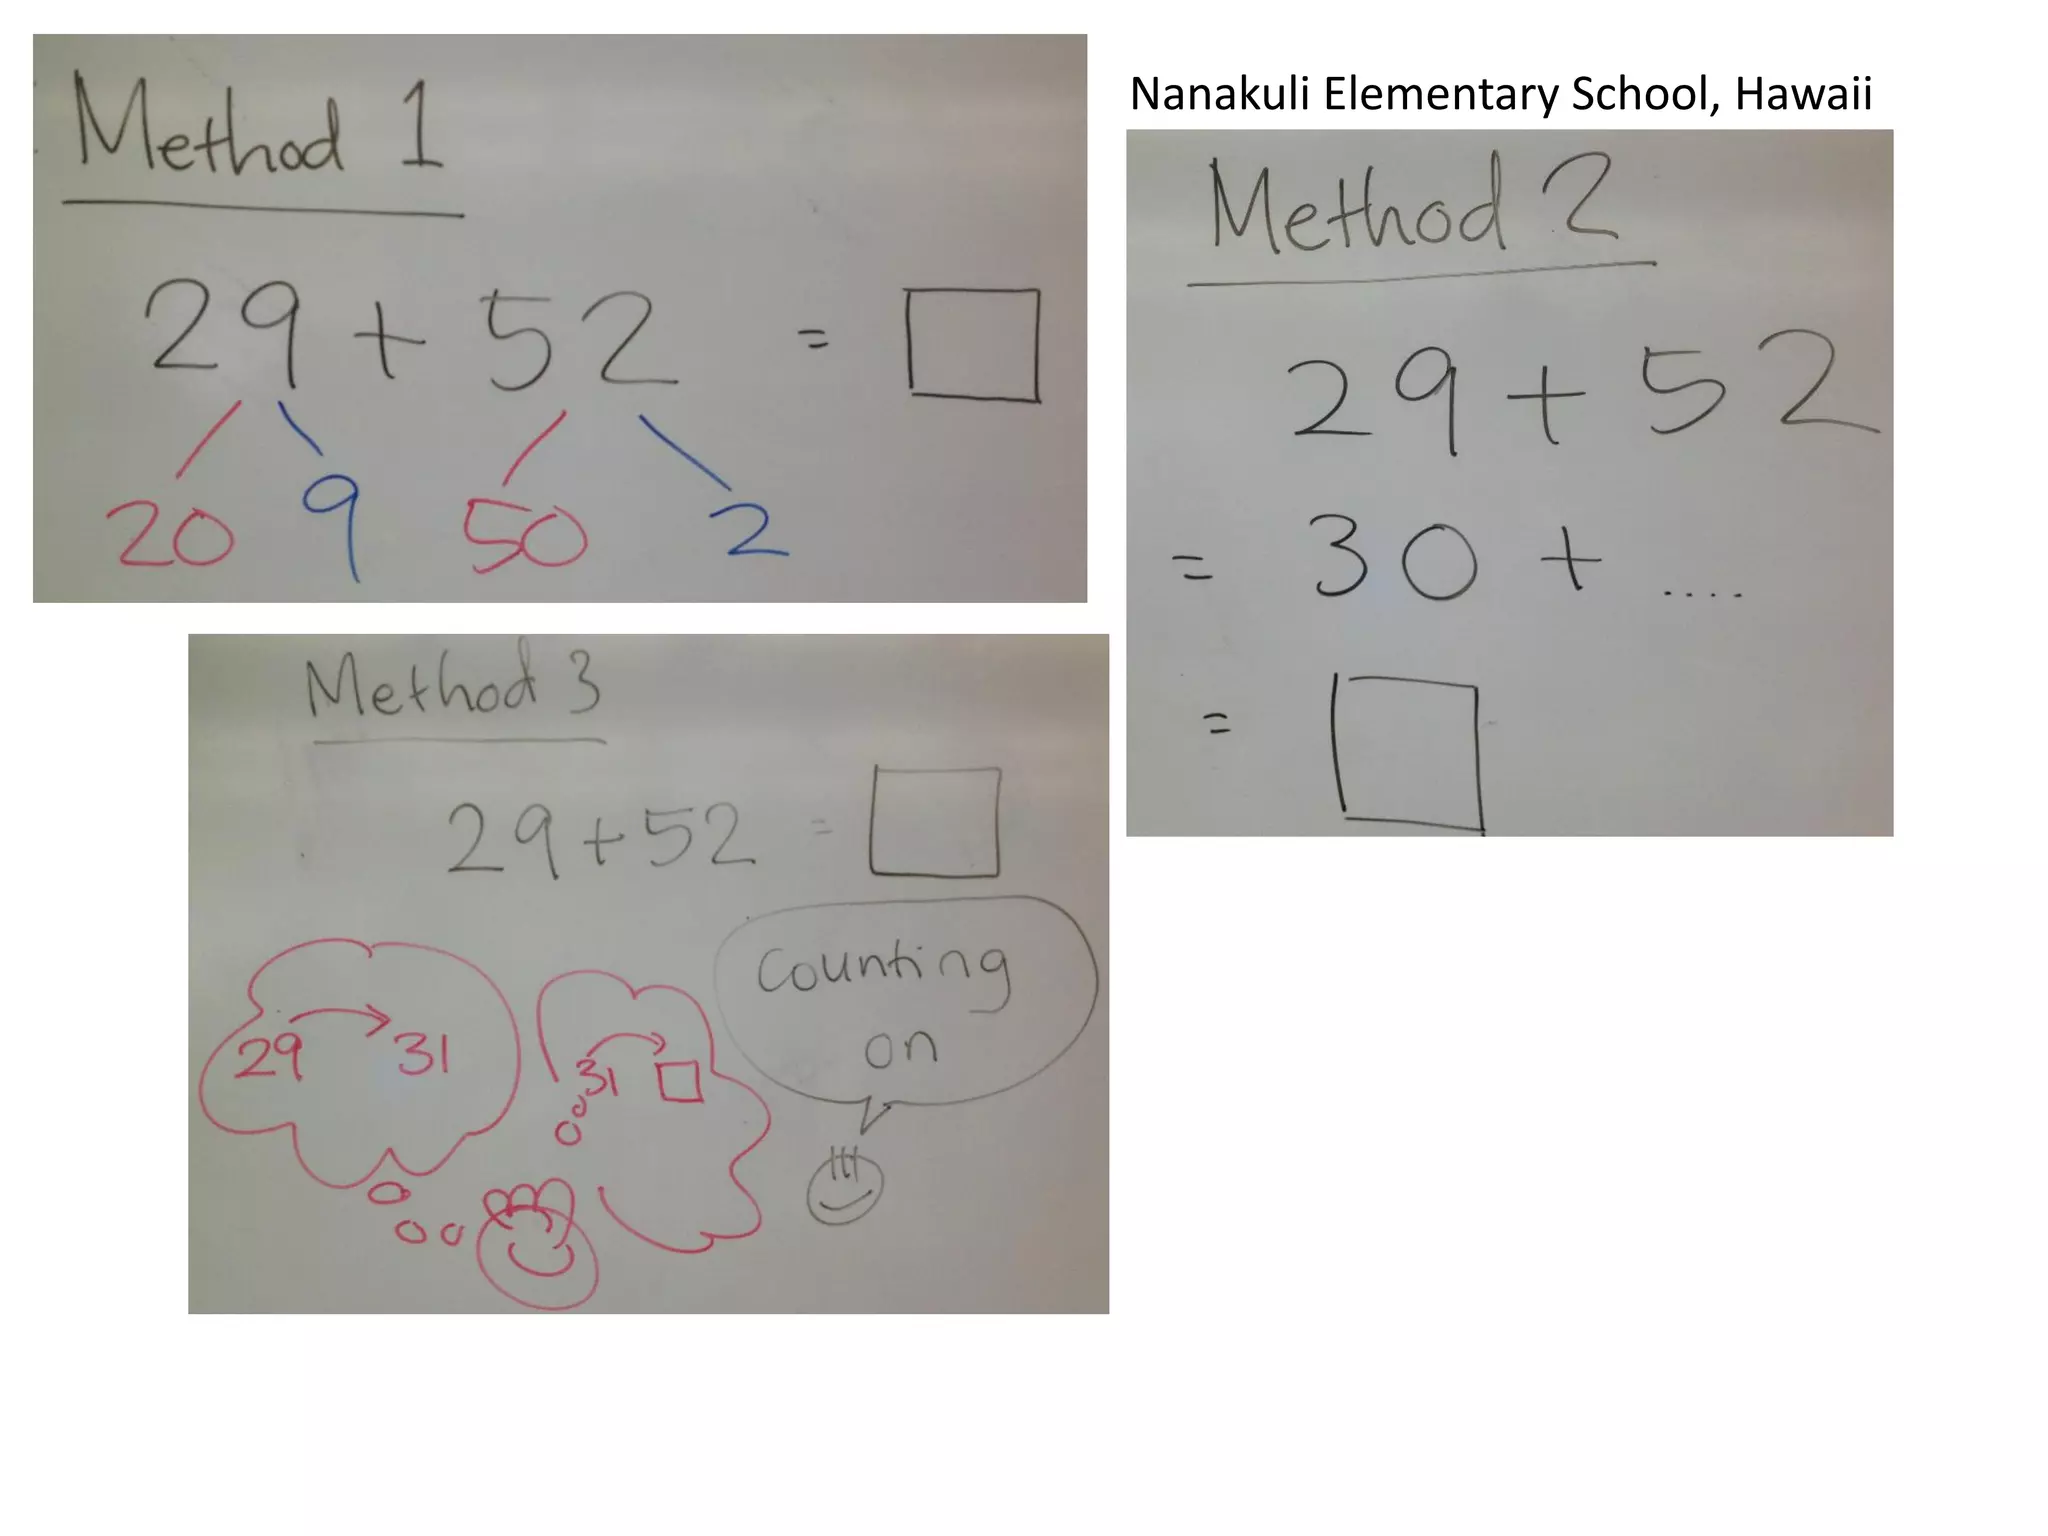 Method 1
29 + 52 = 
20 9 50 2
Nanakuli Elementary School, Hawaii
Method 2
29 + 52
= 30 + ....
=
Method 3
29 + 52 =
Counting
on
29 31
31